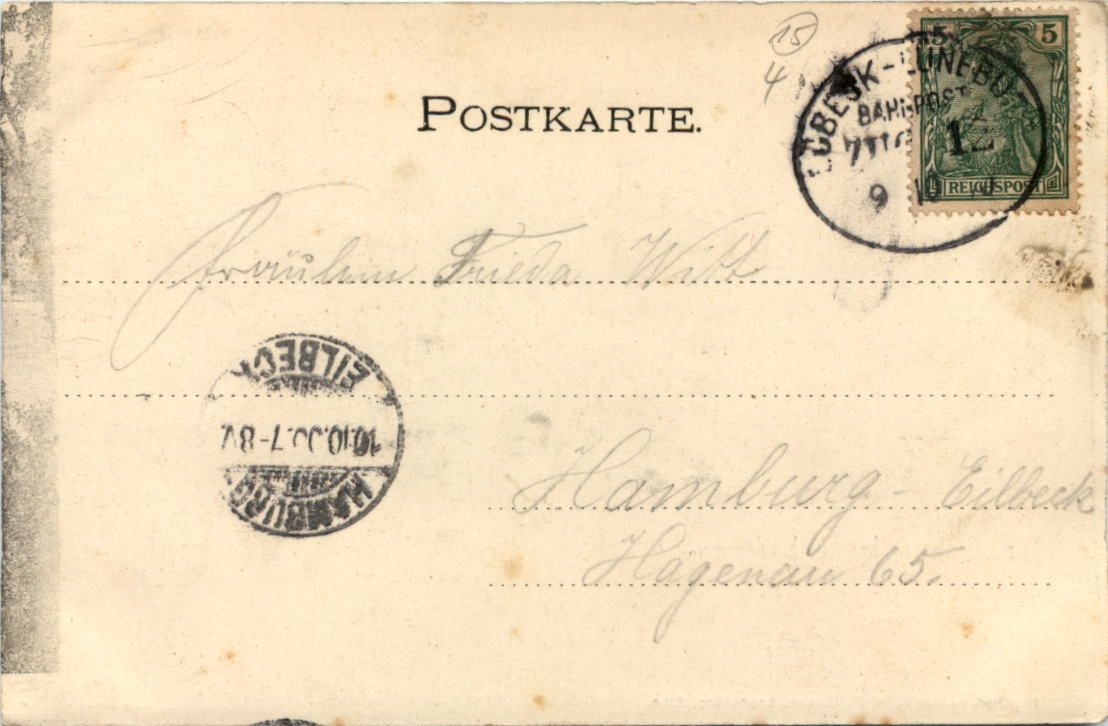 15
4
POSTKARTE.
5 5
REICHSPOST
LÜBECK-LÜNEBU
BAHNPOST
12
9 10
Fräulein Frieda Witt
EILBECK
10.10.00.7-8V.
HAMBURG
Hamburg-Eilbeck
Hagenau 65.